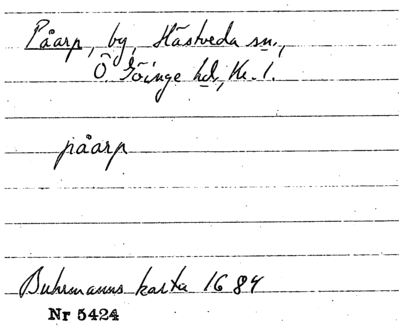 Påarp, by, Hästveda sn.,
Ö. Göinge hd, Kr. l.
påarp
Buhrmanns karta 1684
Nr 5424